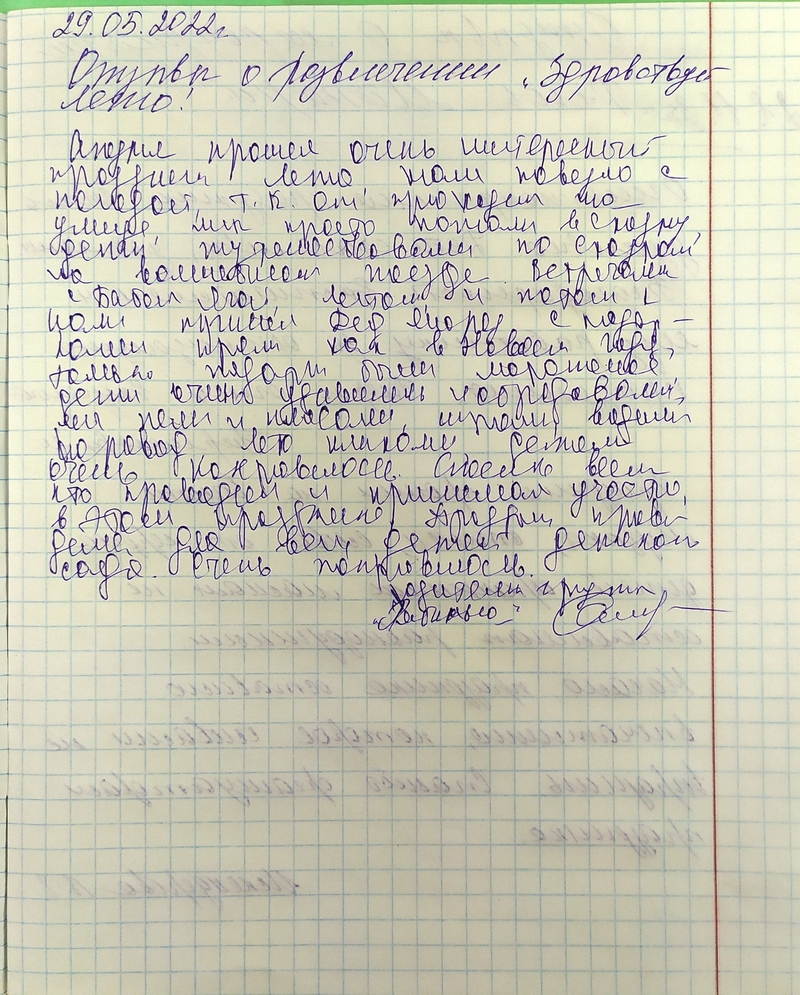 29.05.2022г
Отзыв о развлечении "Здравствуй
лето!
прошел очень интересный
праздник лета нам повезло с
погодой, т.к. он проходил на
улице, мы просто попали в сказку,
дети путешествовали по сказкам
на волшебном поезде. Встречали
с Бабой Ягой, летом и потом к
нам пришел Дед Мороз с подар-
ками прям как в Новый год,
только подарки были мороженое,
дети очень удивились и обрадовались,
мы пели и плясали, играли водили
хоровод, лето кликали детям
очень понравилось. Спасибо всем
кто проводил и принимал участие
в этом празднике, праздник прове-
дена для всех детей детского
сада. Очень понравилось.
родители группы